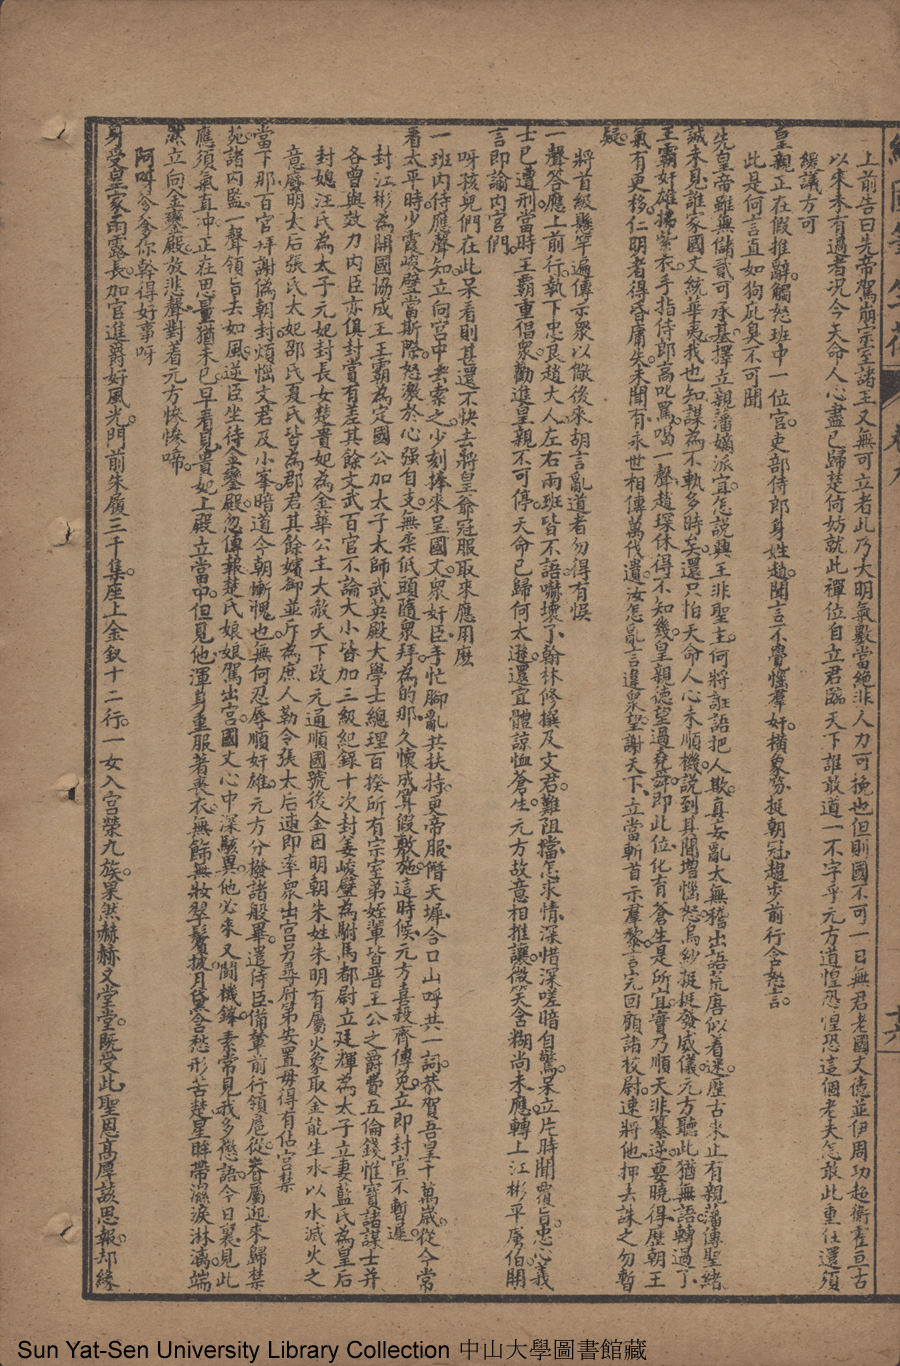 上前告曰先帝駕崩宗室諸王又無可立者此乃大明氣數當絕非人力可挽也但則國不可一日無君老國丈德並伊周功超衡霍亘古
以來未有過者况今天命人心盡已歸楚何妨就此禪位自立君臨天下誰敢道一不字乎元方道惶恐惶恐這個老夫怎敢此重任還須
緩議方可
皇親正在假推辭觸怒班中一位官吏部侍郎身姓趙聞言不覺惱羣奸橫象笏挺朝冠趨步前行含怒言
此是何言直如狗庇臭不可聞
先皇帝雖無儲貳可承基擇立親藩嫡派宜怎說興王非聖主何將誑語把人欺真妄亂太無稽出語荒唐似着迷歷古來止有親藩傳聖緒
誠未見誰家國丈統華夷我也知謀為不軌多時矣還只怕天命人心未順機說到其間增惱怒烏紗挺挺發威儀元方聽此猶無語轉過了
王霸奸雄拂紫衣手指侍郎高叱罵喝一聲趙琛休得不知幾皇親德望過堯舜即此位化有蒼生是所宜實乃順天非篡逆要曉得歷朝王
氣有更移仁明者得昏庸失未聞有永世相傳萬代遺汝怎亂言違衆望謝天下立當斬首示羣黎言完回顧諸校尉速將他押去誅之勿暫
疑
將首級懸竿遍傳示衆以儆後來胡言亂道者勿得有悞
一聲答應上前行執下忠良趙大人左右兩班皆不語嚇壞了翰林修撰及文君難阻擋怎求情深惜深嗟暗自驚呆立片時聞覆旨忠心義
士已遭刑當時王霸重倡衆勸進皇親不可停天命已歸何太遜還宜體諒恤蒼生元方故意相推讓微笑含糊尚未應轉上江彬平虜伯開
言即諭内官們
呀孩兒們在此呆看則甚還不快去將皇爺冠服取來應用麽
一班内侍應聲知立向宮中去索之少刻捧來呈國丈衆奸臣手忙腳亂共扶持更帝服僭天墀合口山呼共一詞恭賀吾皇千萬歲從今常
看太平時少霞峻璧當斯際怒激於心强自支無柰低頭隨衆拜為的那久懷成算假敷施這時候元方喜殺齊傳免立即封官不暫遲
封江彬為開國協成王王霸為定國公加太子太師武英殿大學士總理百揆所有宗室弟姪輩皆晋王公之爵費五倫錢惟寶諸謀士并
各曾與效力内臣亦俱封賞有差其餘文武百官不論大小皆加三級紀録十次封姜峻璧為駙馬都尉立建輝為太子立妻藍氏為皇后
封媳汪氏為太子元妃封長女楚貴妃為金華公主大赦天下改元通順國號後金因明朝朱姓朱明有屬火象取金能生水以水滅火之
意廢明太后張氏太妃邵氏夏氏皆為郡君其餘嬪御並斥為庶人勒令張太后速即率衆出宮另尋府第安置毋得有佔宮禁
當下那百官拜謝偽朝封煩惱文君及小峯暗道今朝慚愧也無何忍辱順奸雄元方分撥諸般畢遣侍臣備輦前行領扈從眷屬迎來歸禁
苑諸内監一聲領旨去如風逆臣坐待金鑾殿忽傳報楚氏娘娘駕出宮國丈心中深駭異他必來又鬧機鋒素常見我多慙語今日裏見此
應須氣直冲正在思量猶未已早看見貴妃上殿立當中但見他渾身重服著喪衣無飾無妝翠鬢披月黛含愁形苦楚星眸帶濕淚淋漓端
然立向金鑾殿放悲聲對着元方慘慘啼
阿呀爹爹你幹得好事呀
身受皇家雨露長加官進爵好風光門前朱履三千集座上金釵十二行一女入宮榮九族果然赫赫又堂堂既受此聖恩高厚該思報却緣
卷九
十六
Sun Yat-Sen University Library Collection 中山大學圖書館藏